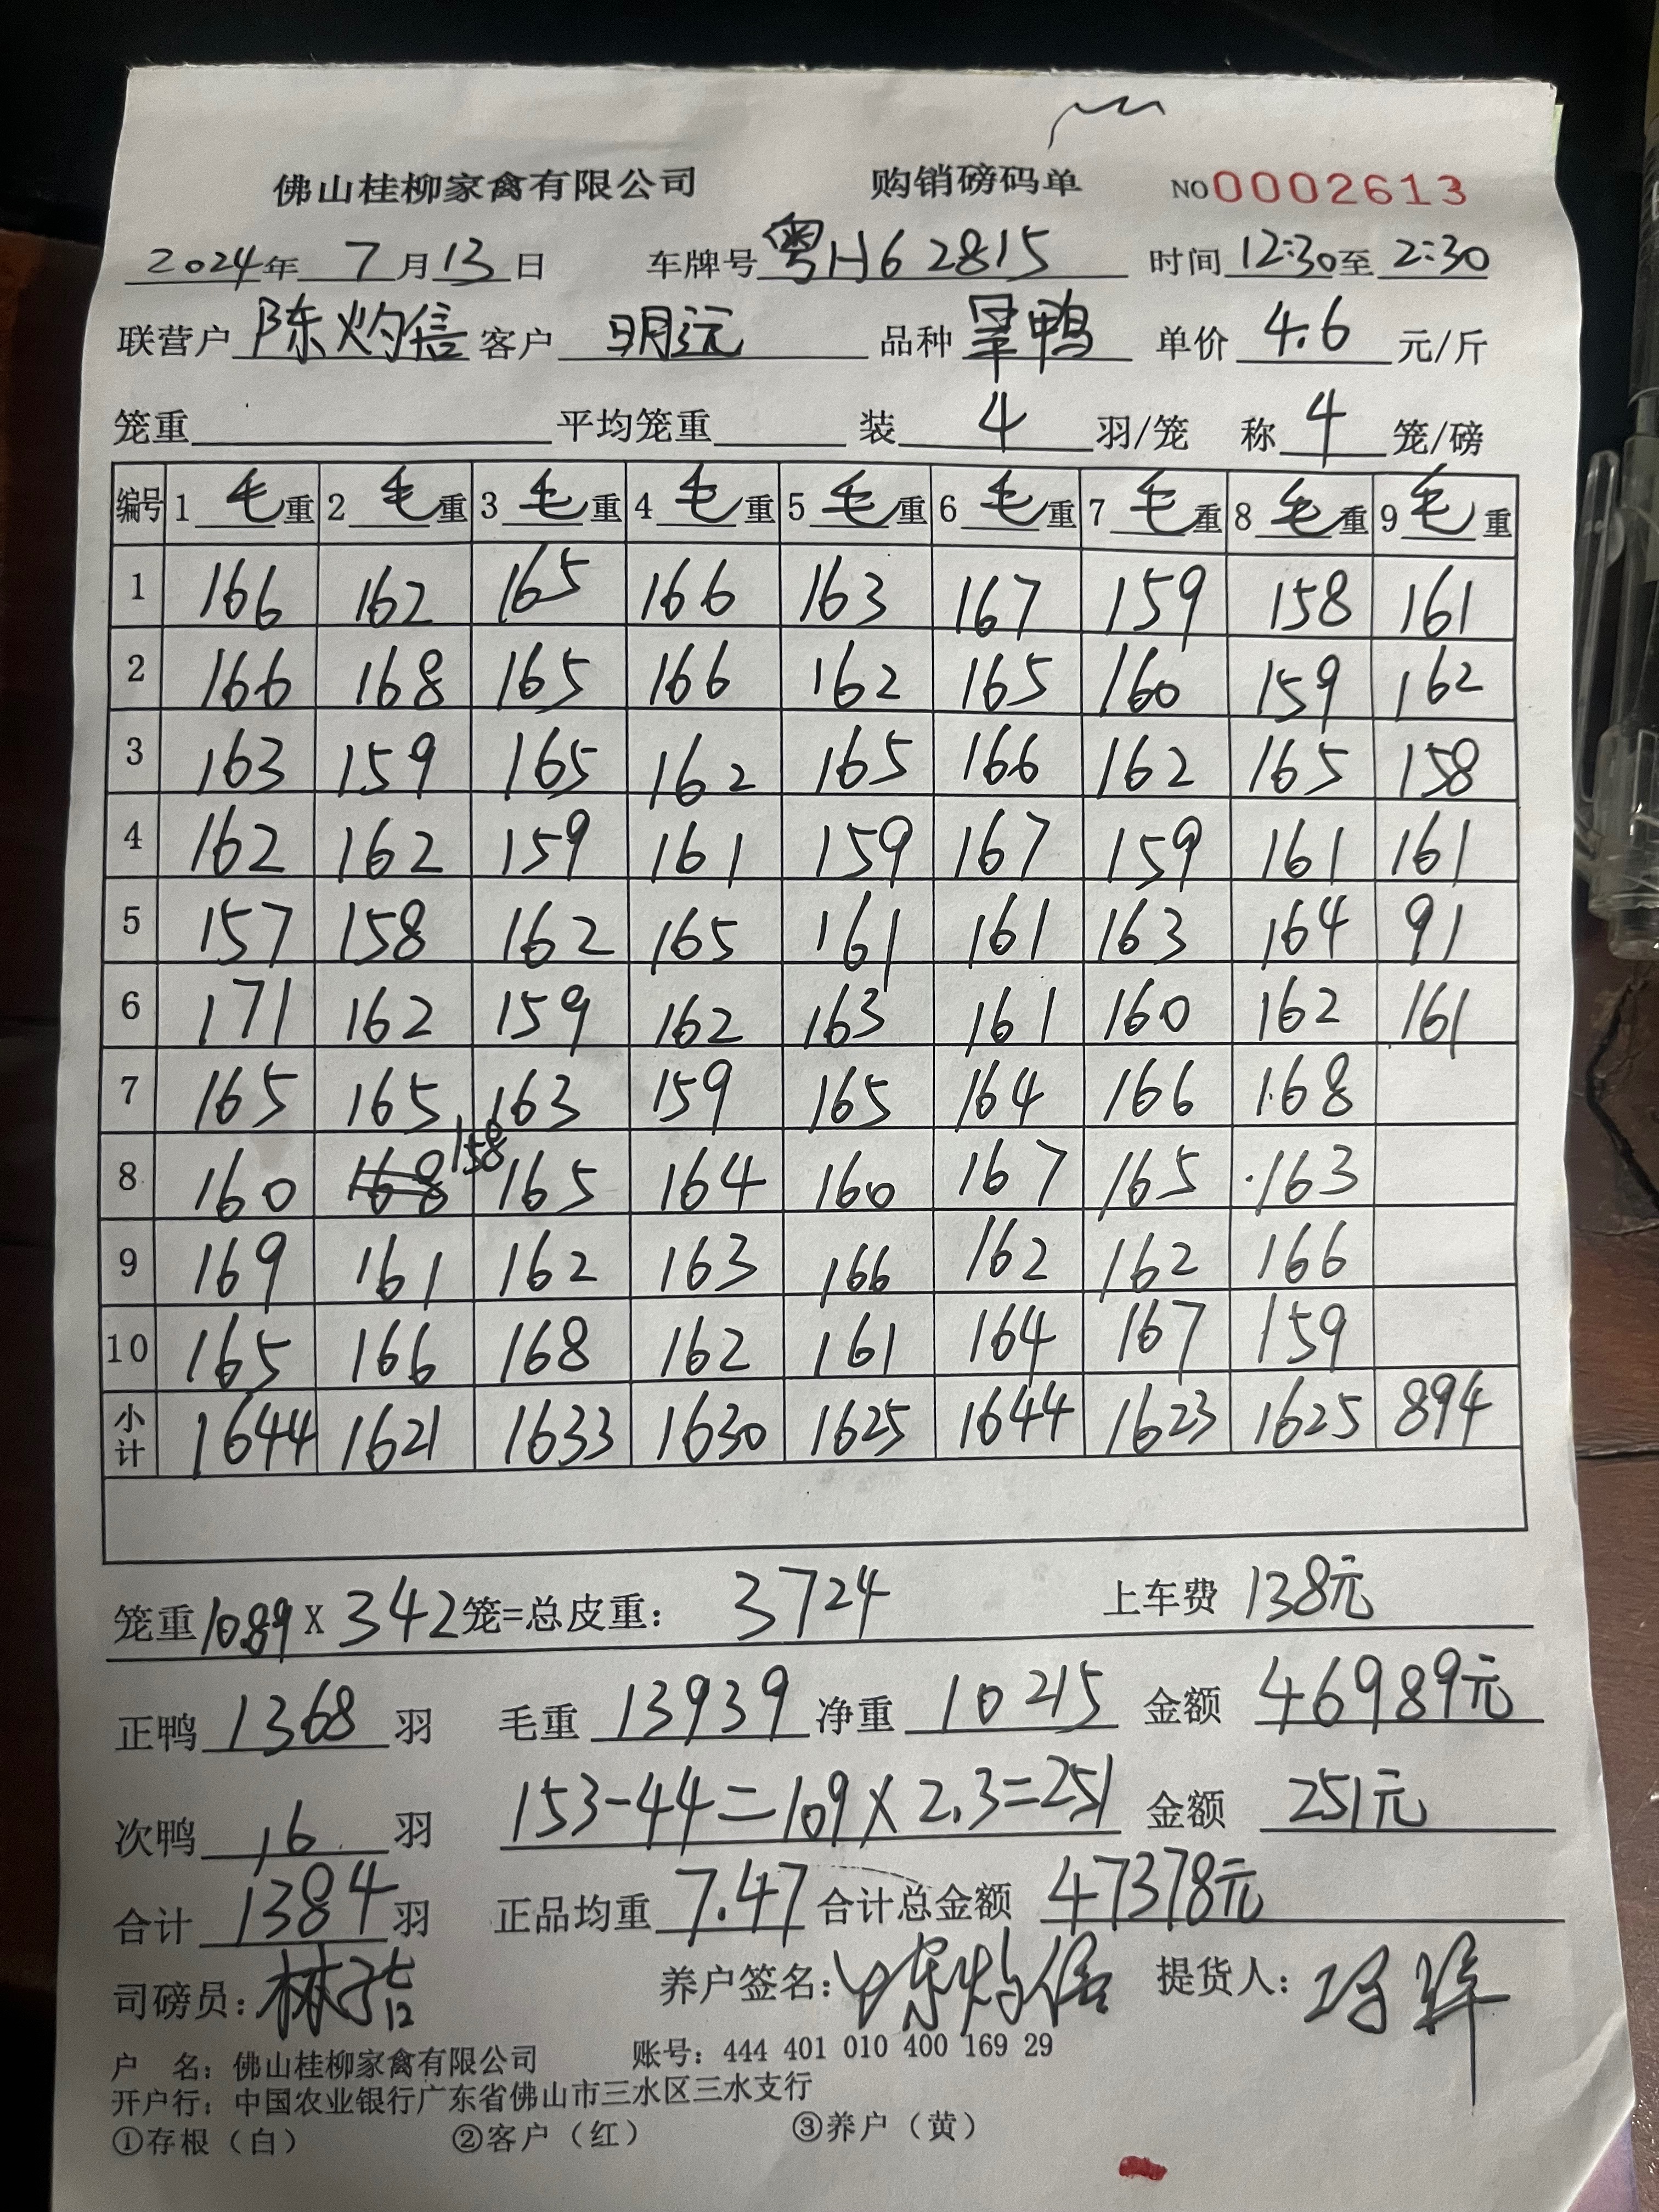 佛山桂柳家禽有限公司 购销磅码单 NO 0002613
2024年 7月13日 车牌号 粤H62815 时间 12:30至 2:30
联营户 陈灼信 客户 明沅 品种 旱鸭 单价 4.6 元/斤
笼重 平均笼重 装 4 羽/笼 称 4 笼/磅
编号 1 毛重 2 毛重 3 毛重 4 毛重 5 毛重 6 毛重 7 毛重 8 毛重 9 毛重
1 166 162 165 166 163 167 159 158 161
2 166 168 165 166 162 165 160 159 162
3 163 159 165 162 165 166 162 165 158
4 162 162 159 161 159 167 159 161 161
5 157 158 162 165 161 161 163 164 91
6 171 162 159 162 163 161 160 162 161
7 165 165 163 159 165 164 166 168
8 160 168 158 165 164 160 167 165 163
9 169 161 162 163 166 162 162 166
10 165 166 168 162 161 164 167 159
小计 1644 1621 1633 1630 1625 1644 1623 1625 894
笼重10.89 X 342笼=总皮重: 3724 上车费 138元
正鸭 1368 羽 毛重 13939 净重 10215 金额 46989元
次鸭 16 羽 153-44=109×2.3=251 金额 251元
合计 1384 羽 正品均重 7.47 合计总金额 47378元
司磅员: 养户签名: 陈灼信 提货人:
户 名: 佛山桂柳家禽有限公司 账号: 444 401 010 400 169 29
开户行: 中国农业银行广东省佛山市三水区三水支行
①存根（白） ②客户（红） ③养户（黄）